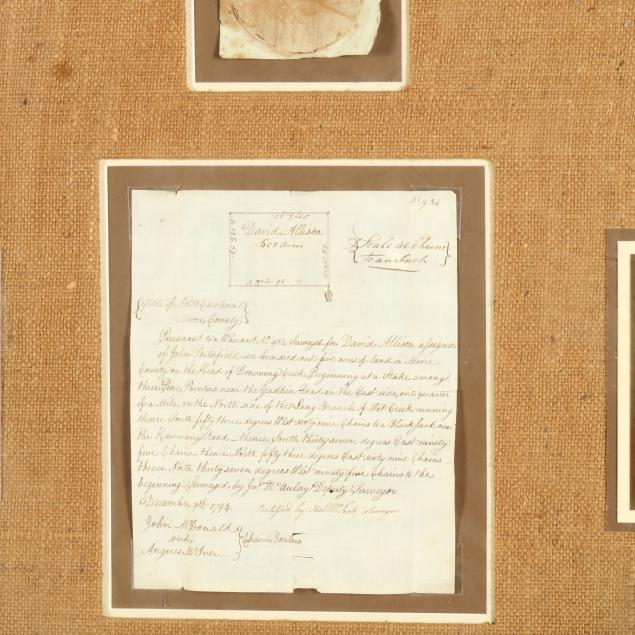 No 934
David Allison
605 Acres
Scale 40 Chains
to an Inch
State of North Carolina
Moore County
Pursuant to a Warrant No 934 Surveyed for David Allison assignee
of John Porterfield six hundred and five acres of land in Moore
County on the Head of Drowning Creek Beginning at a Stake among
three Pine Pointers near the Yadkin Road on the East side, one quarter
of a Mile, on the North side of the Long Branch of Wet Creek running
thence South fifty three degrees West sixty nine Chains to a Black Jack near
the Road thence South thirty seven degrees East ninety
five Chains thence North fifty three degrees East sixty nine Chains
thence North thirty seven degrees West ninety five Chains to the
beginning Surveyed by Jno McAulay Deputy Surveyor
December 9th 1794 Certified by Surveyor
John McDonald
and
Angus McIver
Chain Bearers